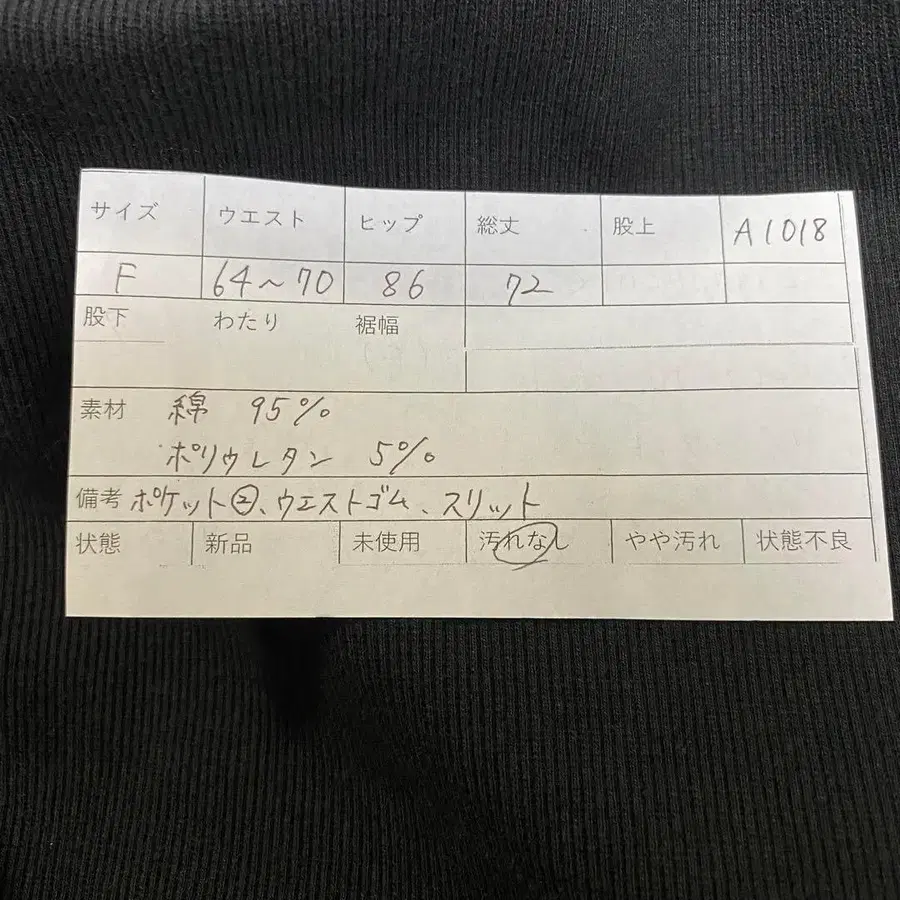 サイズ ウエスト ヒップ 総丈 股上 A1018
F 64~70 86 72
股下 わたり 裾幅
素材 綿 95%
ポリウレタン 5%
備考 ポケット②、ウエストゴム、スリット
状態 新品 未使用 汚れなし やや汚れ 状態不良